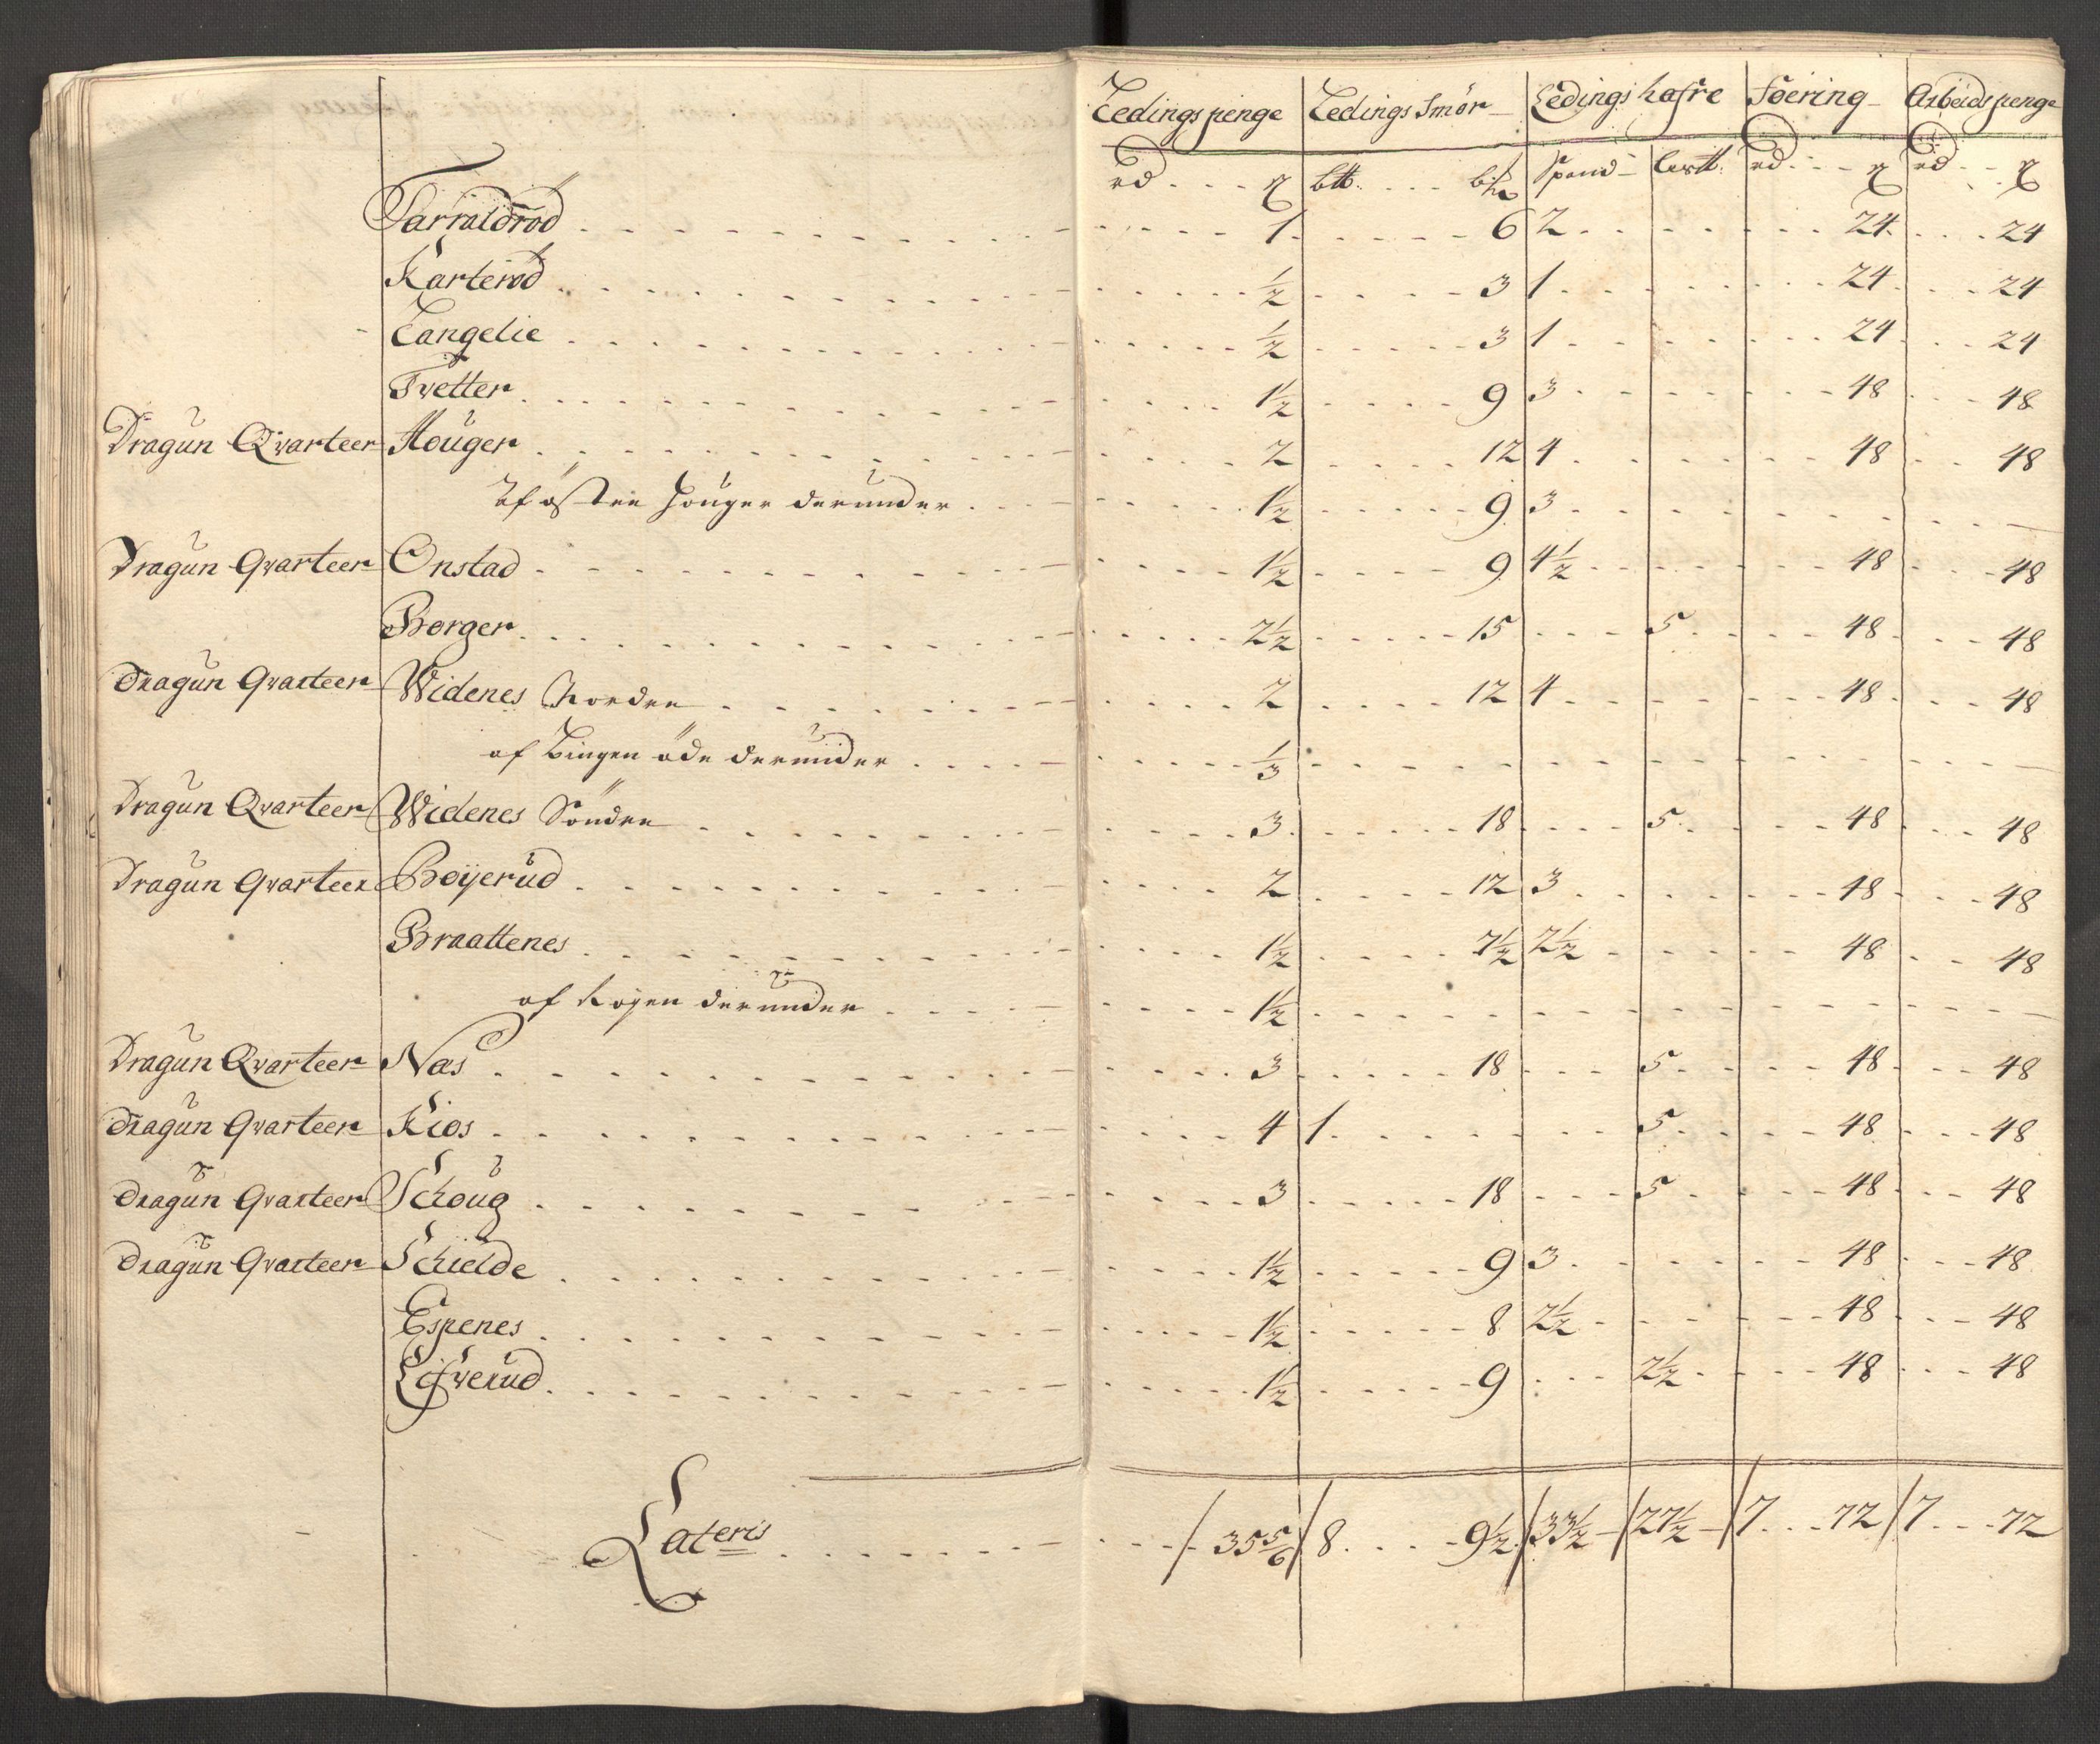 Ledings penge Ledings Smör Ledings hafre Föering Arbeids penge
rd ß btt: b:/m Spand Certt: rd ß rd ß
Tarraldröd 1 6 2 24 24
Karteröd ½ 3 1 24 24
Tangelie ½ 3 1 24 24
Tvetter 1½ 9 3 48 48
Dragun Qvarteer Houger 2 12 4 48 48
Af östre Houger derunder 1½ 9 3
Dragun Qvarteer Onstad 1½ 9 4½ 48 48
Borger 2½ 15 5 48 48
Dragun Qvarteer Widenes Nordre 2 12 4 48 48
af Bingen öde derunder ⅓
Dragun Qvarteer Widenes Söndre 3 18 5 48 48
Dragun Qvarteer Böÿerud 2 12 3 48 48
Braattenes 1½ 7½ 2½ 48 48
af derunder 1½
Dragun Qvarteer Næs 3 18 5 48 48
Dragun Qvarteer Kios 4 1 5 48 48
Dragun Qvarteer Schoug 3 18 5 48 48
Dragun Qvarteer Schielde 1½ 9 3 48 48
Espenes 1½ 8 2½ 48 48
Lifverud 1½ 9 2½ 48 48
Lateris 35⅚ 8 9½ 33½ 27½ 7 72 7 72